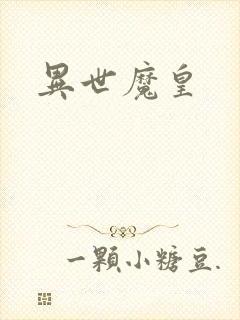 異世魔皇
一顆小糖豆.